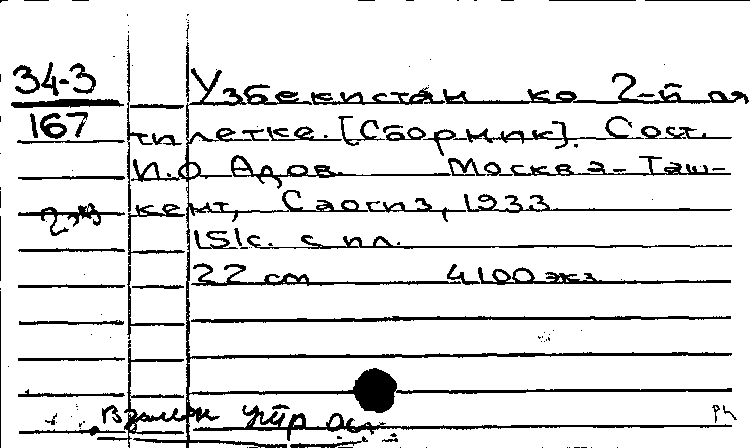 34-3
167
Узбекистан ко 2-й пя
тилетке. [Сборник]. Сост.
И.О. Адов. Москва-Таш-
кент, Саогиз, 1933
151с. с ил.
22 cm 4100 экз
2 экз
Взамен утр